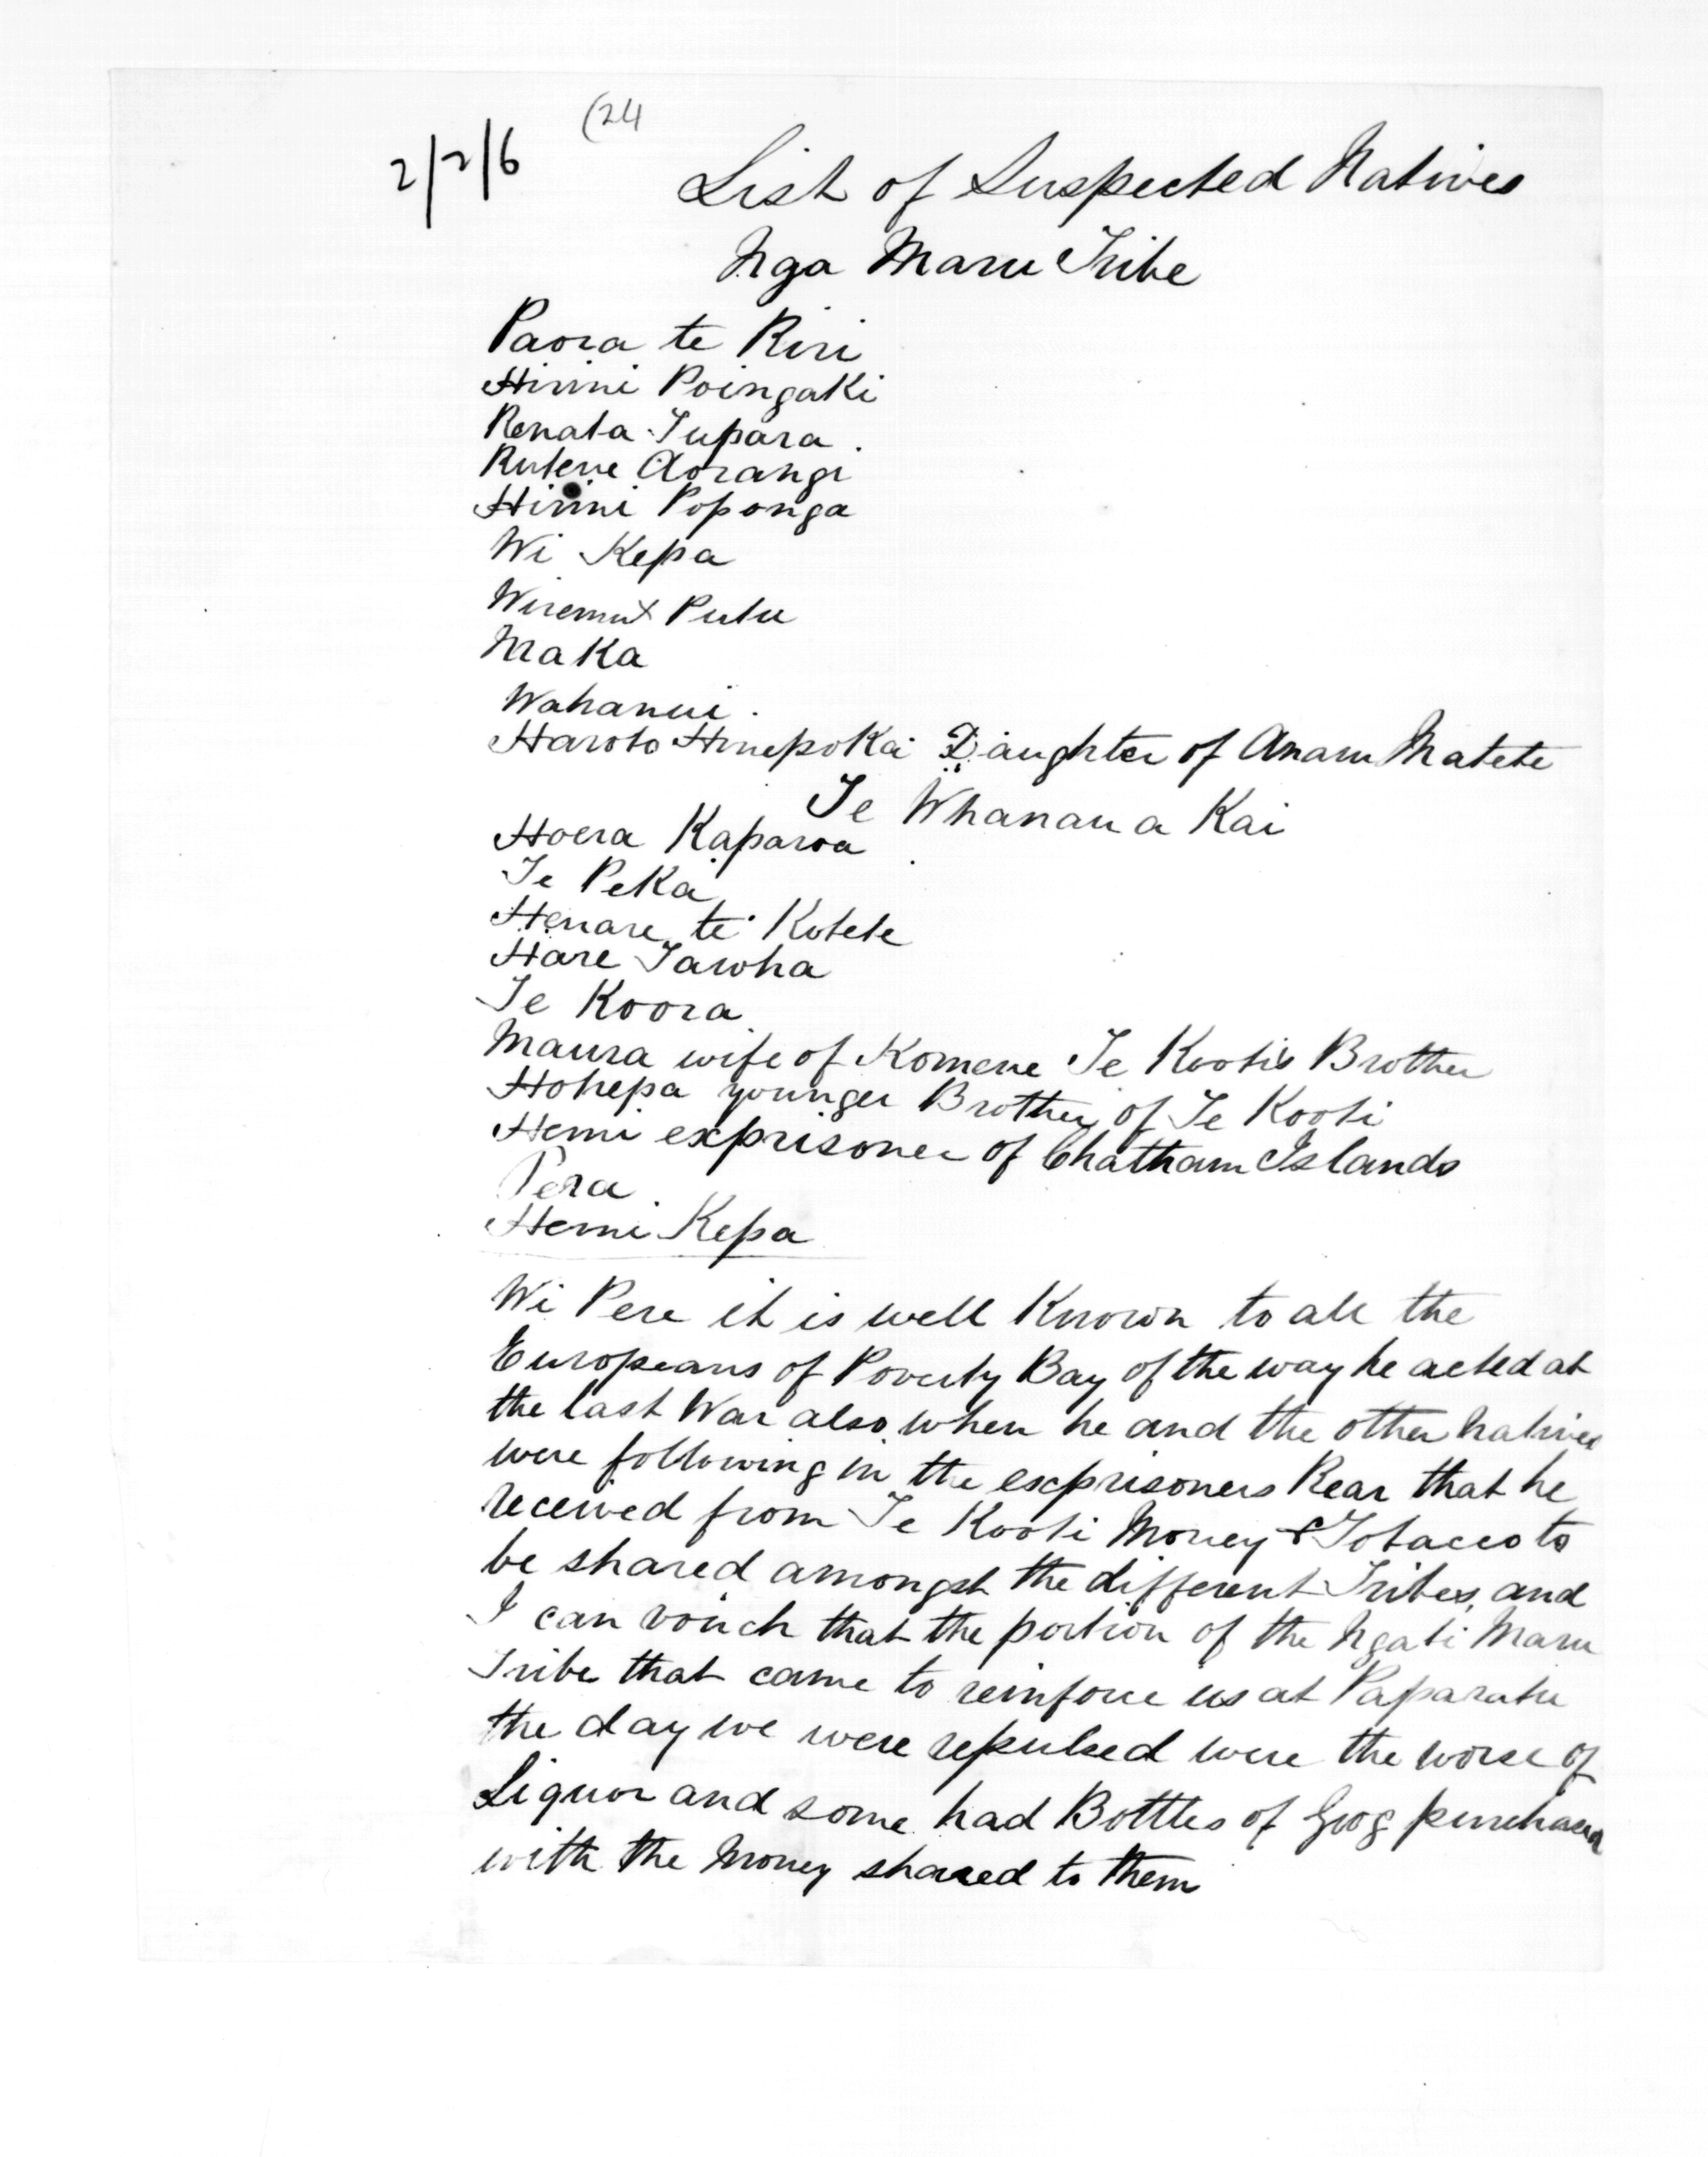 (24
2/2/6
List of Suspected Natives
Nga Maru Tribe
Paora te Riri
Hirini Poingaki
Renata Tupara
Rutene Aorangi
Hirini Poponga
Wi Kepa
Wiremu Putu
Maka
Wahanui.
Haroto Hinepokai Daughter of Anaru Matete
Te Whanau a Kai
Hoera Kaparoa
Te Peka
Henare te Kotete
Hare Tawha
Te Koora
Maura wife of Komene Te Kooti's Brother
Hohepa younger Brother of Te Kooti
Hemi exprisoner of Chatham Islands
Pera
Hemi Kepa
Wi Pere it is well Known to all the
Europeans of Poverty Bay of the way he acted at
the last War also when he and the other natives
were following in the exprisoners Rear that he
received from Te Kooti Money & Tobacco to
be shared amongst the different Tribes, and
I can vouch that the portion of the Ngati Maru
Tribe that came to reinforce us at Paparatu
the day we were repulsed were the worse of
Liquor and some had Bottles of Grog purchased
with the Money shared to them